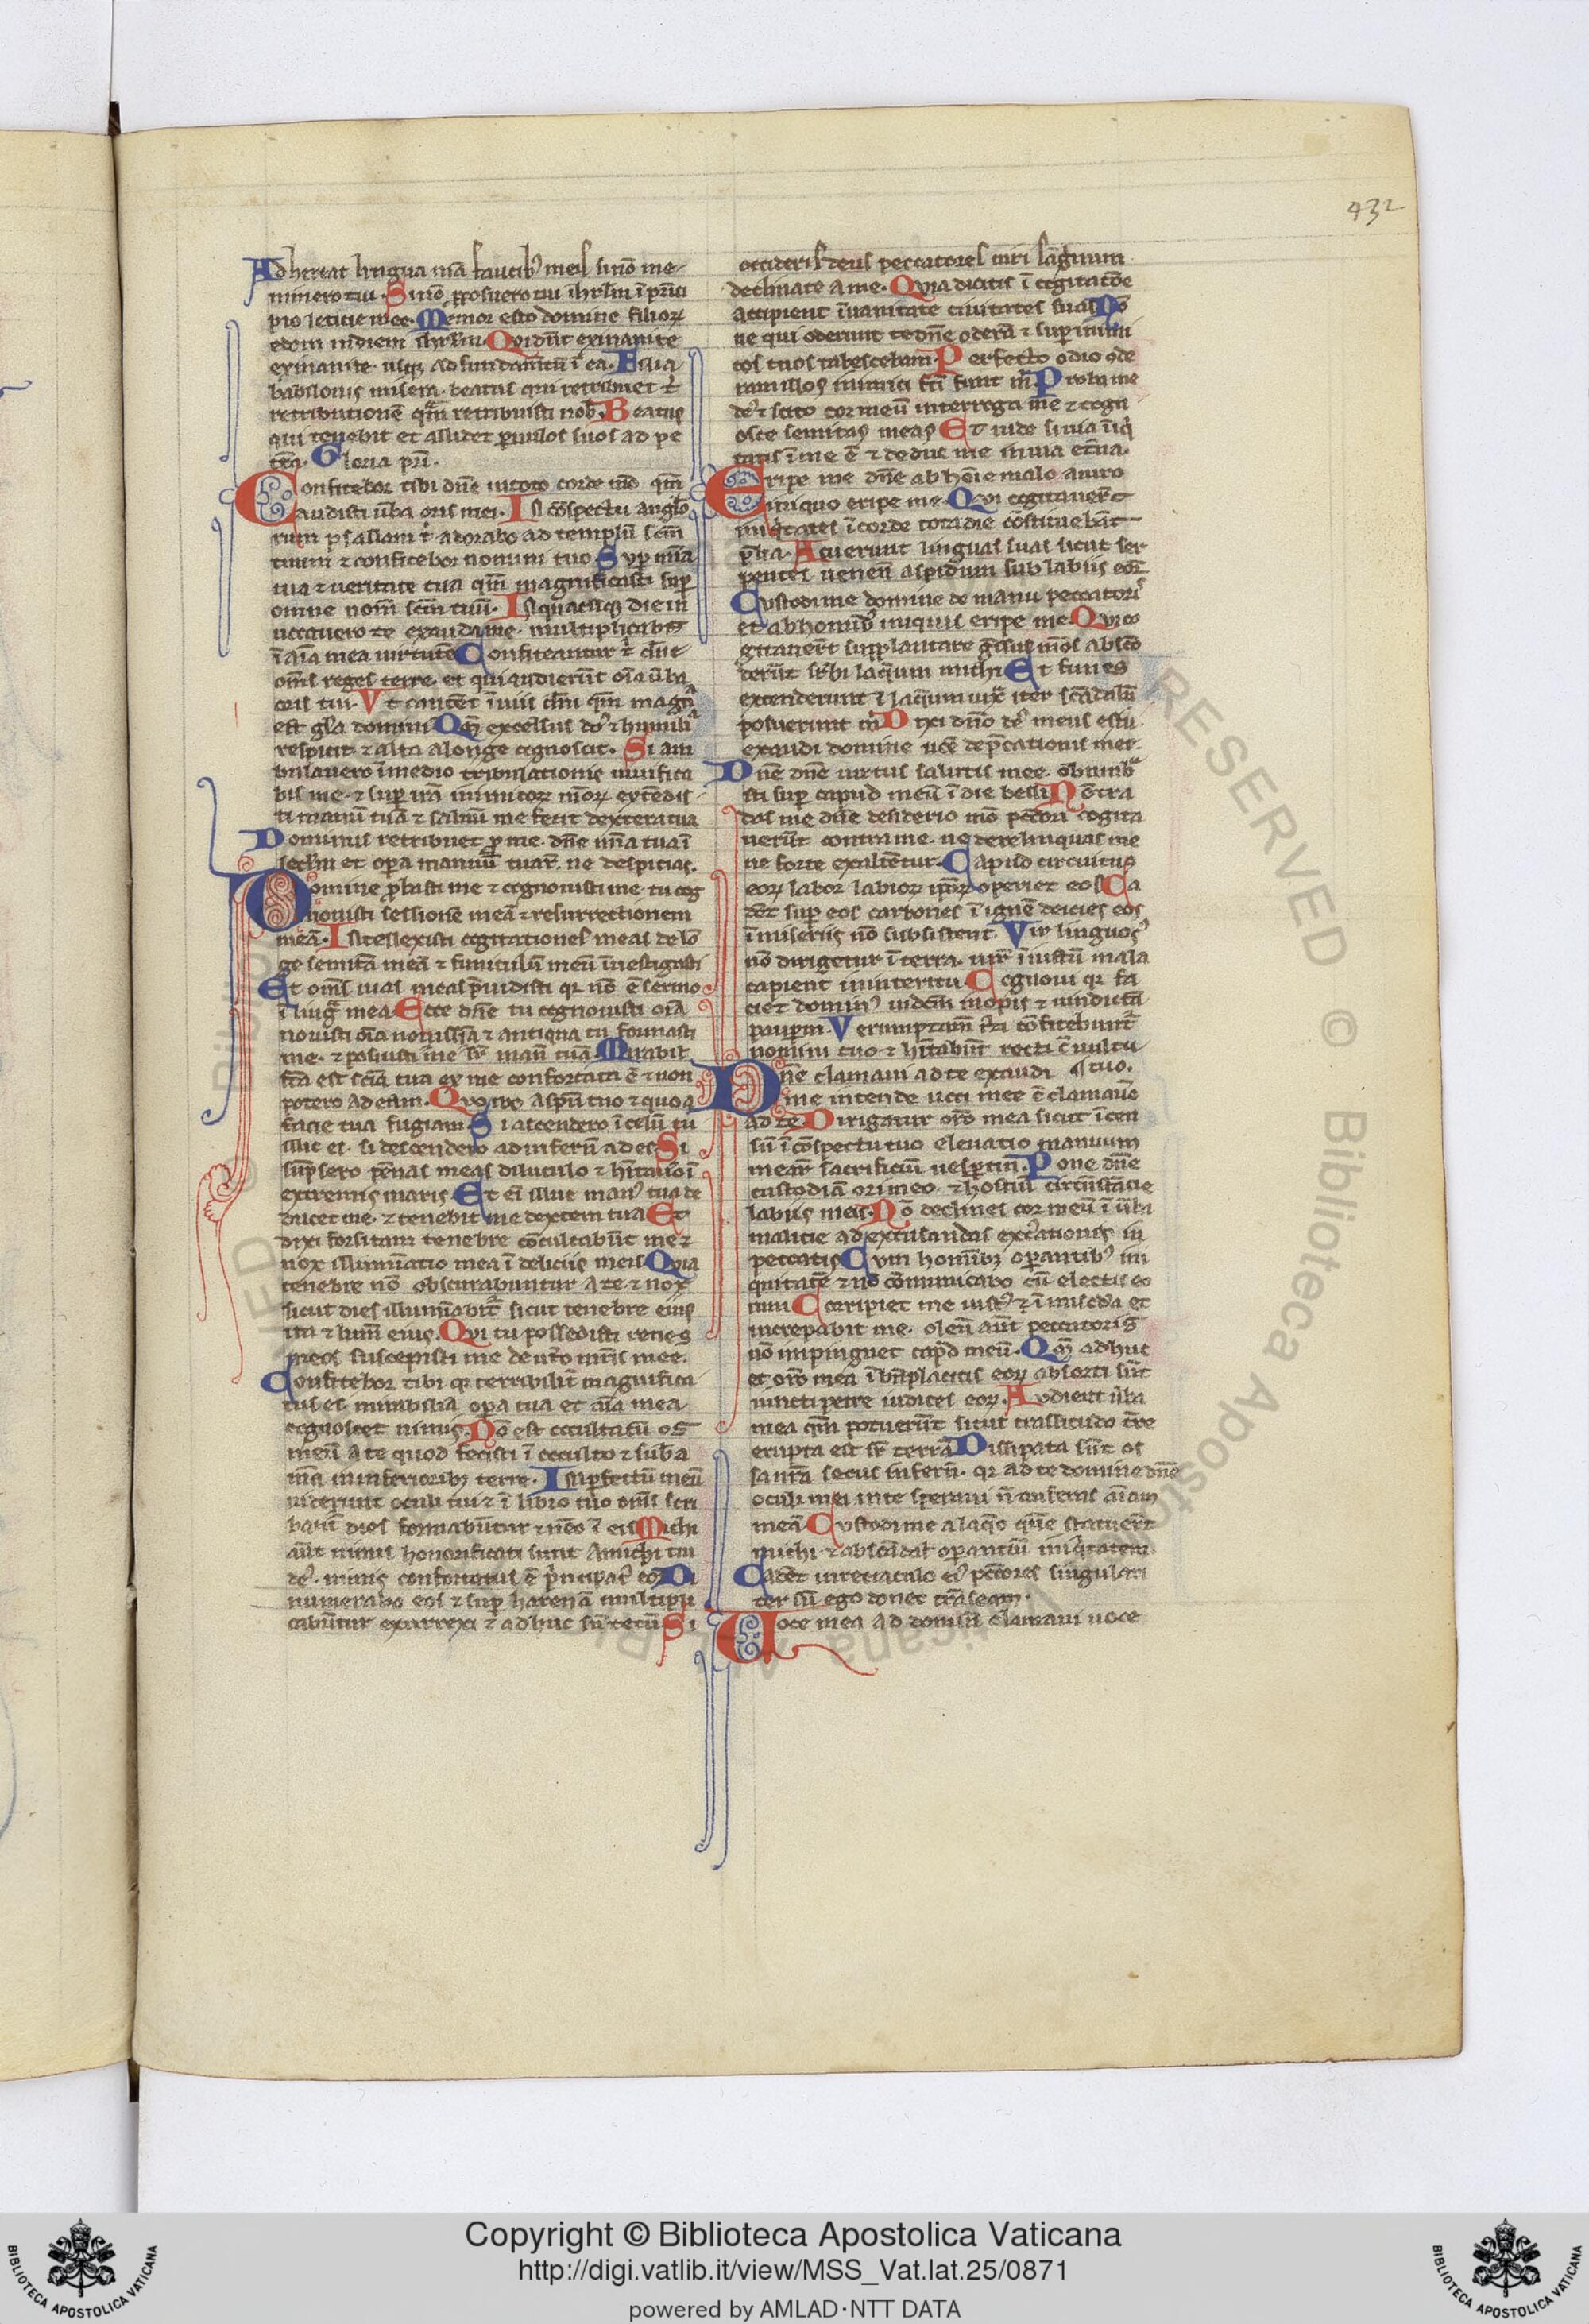 432
Adhereat lingua mea faucib9 meis si nō me
minero tui. Si nō proposuero tui ihrlm ī prīci
pio leticie mee. Memor esto domine filioꝝ
edom in diem ihrlm. Qui dn̄t exinanite
exinanite usqꝫ ad fundam̄tū ī ea. Filia
babilonis misera. beatus qui retribuet t̄
retributionē qm̄ retribuisti nob̄. Beatus
qui tenebit et allidet paruulos suos ad pe
trā. Gloria pri.
Confitebor tibi dn̄e in toto corde meo qm̄
audisti ūba oris mei. In cōspectu anglo
rum psallam t̄ adorabo ad templū scm̄
tuum ⁊ confitebor nomini tuo. Super mīa
tua ⁊ ueritate tua qm̄ magnificasti sup
omne nom̄ scm̄ tuū. In quacūqꝫ die in
uocauero te exaudi me. multiplicabis
ī aīa mea uirtutē. Confiteantur t̄ dn̄e
om̄s reges terre. et qui audierūt oīa ūba
oris tui. Vt cantēt ī uiis dn̄i qm̄ magn̄
est gla domini. Qm̄ excelsus do9 ⁊ humilia
respicit ⁊ alta a longe cognoscit. Si am
bulauero ī medio tribulationis uiuifica
bis me. ⁊ sup irā inimicoꝝ meoꝝ extēdis
ti manū tuā ⁊ saluū me fecit dextera tua
Dominus retribuet p me. dn̄e mīa tua ī
seclm̄ et opa manuū tuar̄. ne despicias.
Domine pbasti me ⁊ cognouisti me. tu cog
nouisti sessionē meā ⁊ resurrectionem
meā. Intellexisti cogitationes meas de lō
ge semitā meā ⁊ funiculū meū īuestigasti
Et om̄s uias meas p̄uidisti qr nō ē sermo
ī lingua mea. Ecce dn̄e tu cognouisti oīa
nouissīa ⁊ antiqua tu formasti
me. ⁊ posuisti me sr̄ manū tuā. Mirabil̄
fcā est scīa tua ex me confortata ē ⁊ non
potero ad eam. Quo ibo a spū tuo ⁊ quo a
facie tua fugiam. Si ascendero ī celū tu
illic es. si descendero ad infernū ades. Si
sūpsero pēnas meas diluculo ⁊ hitauero ī
extremis maris. Et ei illuc man9 tua de
ducet me. ⁊ tenebit me dextera tua. Et
dixi forsitam tenebre cōculcabūt me ⁊
nox illuminatio mea ī deliciis meis. Quia
tenebre nō obscurabuntur a te. ⁊ nox
sicut dies illumīabit̄ sicut tenebre eius
ita ⁊ lumē eius. Qui tu possedisti renes
meos suscepisti me de utero mr̄is mee.
Confitebor tibi qr terribilit̄ magnifica
tus es. mirabilia opa tua et aīa mea
cognoscet nimis. Nō est occultatū os
meū a te quod fecisti ī occulto ⁊ subā
mea in inferioribꝫ terre. Inpfectū meū
uiderunt oculi tui ⁊ ī libro tuo om̄s scri
bent̄ dies formabūtur ⁊ nēo ī eis. Michi
aūt nimis honorificati sunt amichi tui
de9. nimis confortatus ē p̄ncipat9 eoꝝ. Di
numerabo eos ⁊ sup harenā multipli
cabūtur exurrexi ⁊ adhuc sū tecū. Si
occideris deus peccatores uiri sāguinum
declinate a me. Quia dicitis ī cogitatōe
accipient ī uanitate ciuitates suas. Nō
ne qui oderunt te dn̄e oderā ⁊ sup inimi
cos tuos tabescebam. Perfecto odio ode
ram illos inimici fcī sunt m̄. Proba me
de9 ⁊ scito cor meū interroga me ⁊ cogn
osce semitas meas. Et uide si uia iniq
tatis ī me ē ⁊ deduc me in uia etn̄a.
Eripe me dn̄e ab hoīe malo a uiro
iniquo eripe me. Qui cogitauer̄t
iniq̄tates ī corde tota die cōstituebāt
p̄lia. Acuerunt linguas suas sicut ser
pentes uenenū aspidum sub labiis eoꝝ
Custodi me domine de manu peccatoris
et ab homib9 iniquis eripe me. Qui co
gitauer̄t supplantare gressus meos absco
derūt supbi laqueum michi. Et funes
extenderunt ī laqueum iuxta iter scādalū
posuerunt m̄. Dixi dn̄o de9 meus es tu.
exaudi domine uocē dep̄cationis mee.
Dn̄e dn̄e uirtus salutis mee. obumbra
sti sup capud meū ī die belli. Nō tra
das me dn̄e desiderio meo peccatori cogita
uerūt contra me. ne derelinquas me
ne forte exaltētur. Capud circuitus
eoꝝ labor labioꝝ ipsoꝝ operiet eos. Ca
dēt sup eos carbones ī ignē deicies eos
ī miseriis nō subsistent. Vir linguos9
nō dirigetur ī terra. uir̄ iniustū mala
capient in interitu. Cognoui qr fa
ciet domin9 iudiciū inopis ⁊ uindictā
paupum. Verumptam̄ iusti cōfitebunt̄
nomini tuo ⁊ hītabūt recti c̄ uultu
Dn̄e clamaui ad te exaudi ¶ tuo.
me intende uoci mee c̄ clamauero
ad te. Dirigatur oro mea sicut īcen
sū ī cōspectu tuo eleuatio manuum
mear̄ sacrificiū uesptinū. Pone dn̄e
custodiā ori meo. ⁊ hostiū circūstācie
labiis meis. Nō declines cor meū ī ūba
malicie ad excusandas excusationes in
peccatis. Cum hominibꝫ opantib9 ini
quitatē ⁊ nō cōmunicabo cū electis eo
rum. Corripiet me iust9 ⁊ ī miscd̄ia et
increpabit me. oleū aūt peccatoris
nō impinguet capud meū. Qm̄ adhuc
et oro mea ī bn̄placitis eoꝝ absorti sūt
iuncti petre iudices eoꝝ. Audient ūba
mea qm̄ potuerūt sicut crassitudo terre
erupta est sr̄ terrā. Dissipata sūt os
sa nr̄a secus infernū. qr ad te domine dn̄e
oculi mei in te speraui n̄ auferas aīam
meā. Custodi me a laqueo quē statuer̄t
michi ⁊ ab scādalis opantiū iniq̄tatem.
Cadēt in retiaculo ei9 peccatores singulari
ter sū ego donec trāseam.
Uoce mea ad dominū clamaui uoce
Copyright © Biblioteca Apostolica Vaticana
http://digi.vatlib.it/view/MSS_Vat.lat.25/0871
powered by AMLAD·NTT DATA
BIBLIOTECA APOSTOLICA VATICANA
BIBLIOTECA APOSTOLICA VATICANA